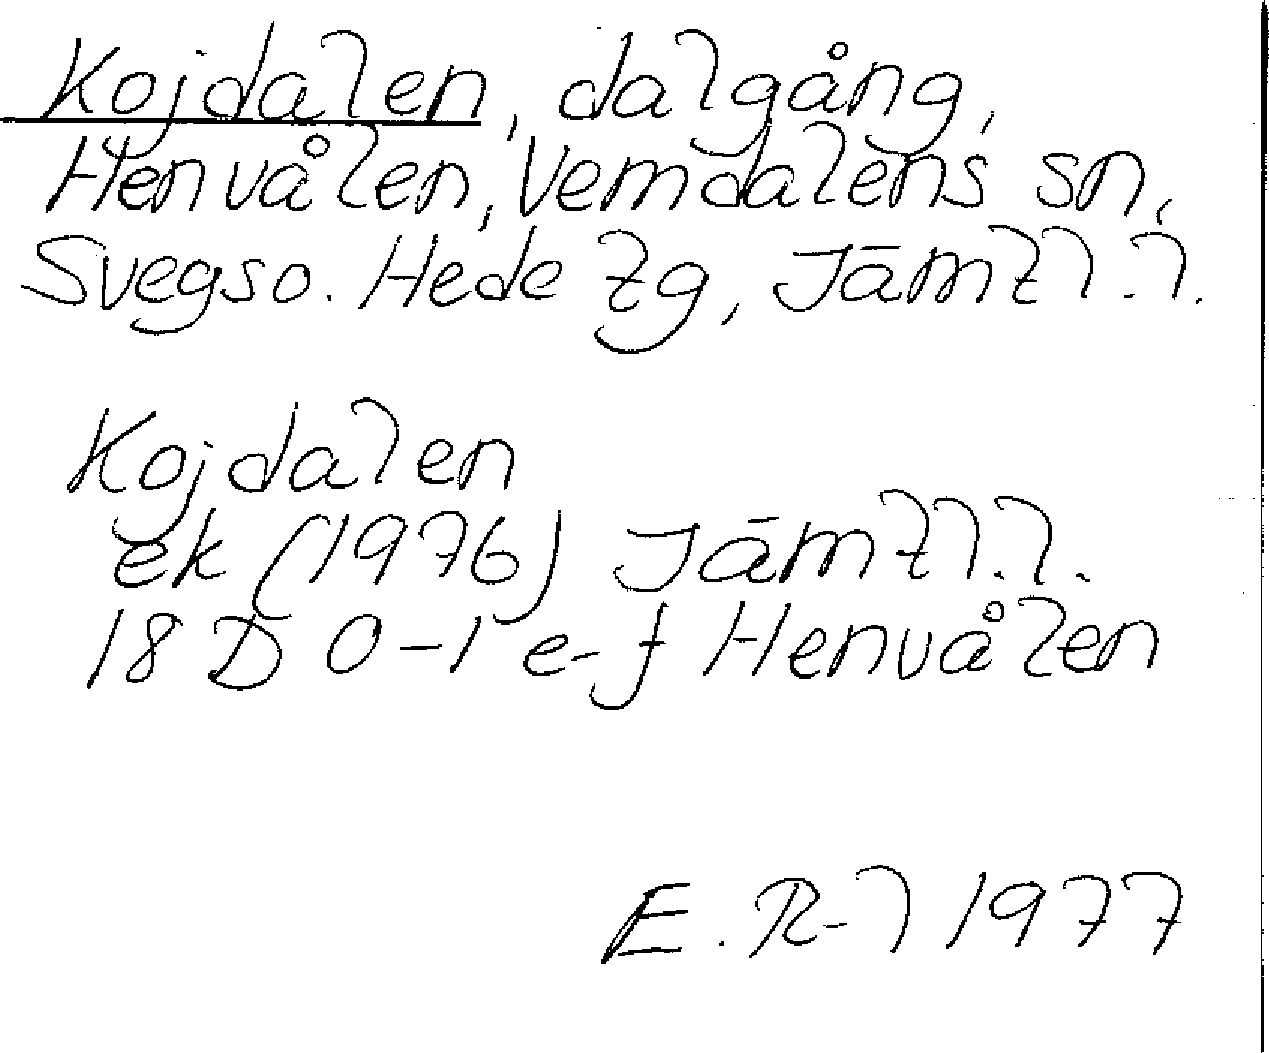 Kojdalen, dalgång,
Henvålen, Vemdalens sn,
Svegs o. Hede tg, Jämtl.l.
Kojdalen
ek (1976) Jämtl.l.
18 D 0-1 e-f Henvålen
E.R-l 1977